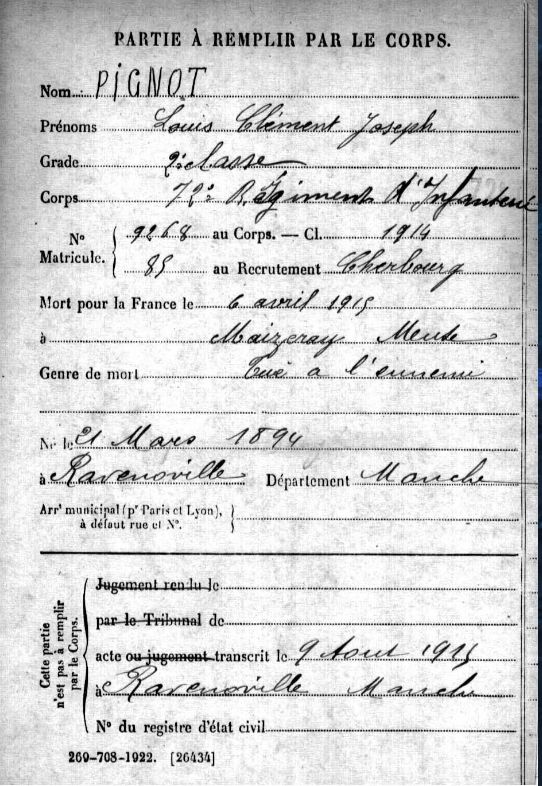 PARTIE À REMPLIR PAR LE CORPS.
Nom PIGNOT
Prénoms Louis Clément Joseph
Grade 2e classe
Corps 72e Régiment d'Infanterie
N° Matricule. 9268 au Corps. — Cl. 1914
85 au Recrutement Cherbourg
Mort pour la France le 6 avril 1915
à Maizeray Meuse
Genre de mort Tué a l'ennemi
Né le 21 Mars 1894
à Ravenoville Département Manche
Arrt municipal (pr Paris et Lyon),
à défaut rue et N°.
Cette partie n'est pas à remplir par le Corps.
Jugement rendu le
par le Tribunal de
acte ou jugement transcrit le 9 Aout 1915
à Ravenoville Manche
N° du registre d'état civil
269-708-1922. [26434]